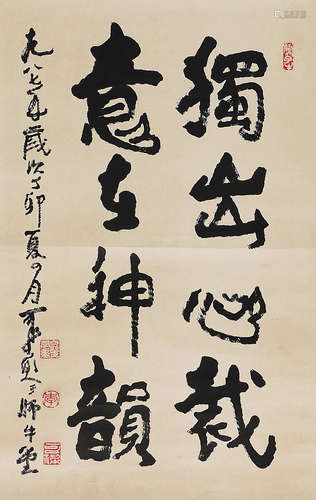 獨出心裁
意在神韻
一九八七年歲次丁卯夏四月可染題于師牛堂